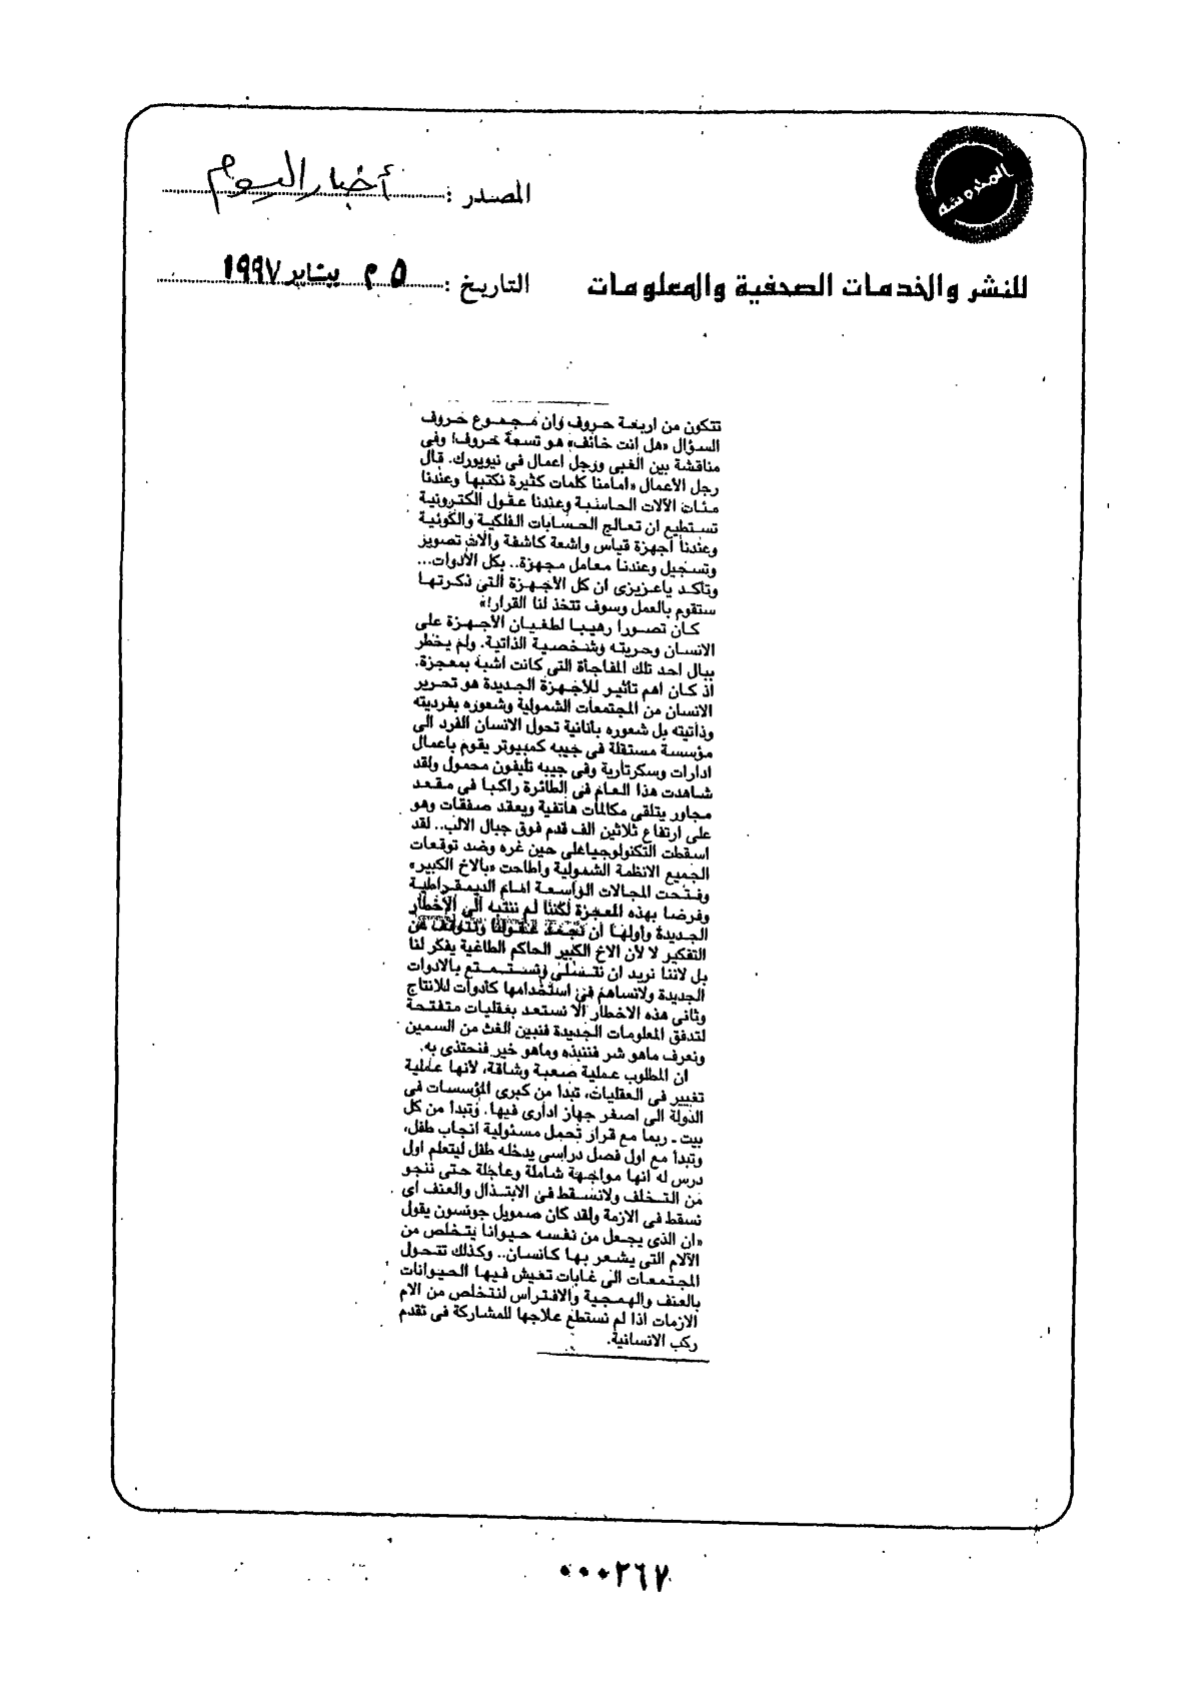 المصدر : أخبار اليوم
للنشر والخدمات الصحفية والمعلومات
التاريخ : يناير ١٩٩٧
تتكون من اربعة حروف وان مجموع حروف
السؤال «هل انت خائف» هو تسعة حروف! وفى
مناقشة بين الغبى ورجل اعمال فى نيويورك. قال
رجل الأعمال «امامنا كلمات كثيرة نكتبها وعندنا
مئات الآلات الحاسبة وعندنا عقول الكترونية
تستطيع ان تعالج الحسابات الفلكية والكونية
وعندنا اجهزة قياس واشعة كاشفة وآلات تصوير
وتسجيل وعندنا معامل مجهزة.. بكل الأدوات...
وتأكد ياعزيزى ان كل الأجهزة التى ذكرتها
ستقوم بالعمل وسوف تتخذ لنا القرار!»
كان تصورا رهيبا لطغيان الأجهزة على
الانسان وحريته وشخصية الذاتية. ولم يخطر
ببال احد تلك المفاجأة التى كانت اشبه بمعجزة.
اذ كان اهم تأثير للأجهزة الجديدة هو تحرير
الانسان من المجتمعات الشمولية وشعوره بفرديته
وذاتيته بل شعوره بأنانية تحول الانسان الفرد الى
مؤسسة مستقلة فى جيبه كمبيوتر يقوم باعمال
ادارات وسكرتارية وفى جيبه تليفون محمول ولقد
شاهدت هذا العام فى الطائرة راكبا فى مقعد
مجاور يتلقى مكالمات هاتفية ويعقد صفقات وهو
على ارتفاع ثلاثين الف قدم فوق جبال الالب.. لقد
اسقطت التكنولوجياعلى حين غره وضد توقعات
الجميع الانظمة الشمولية واطاحت «بالاخ الكبير»
وفتحت المجالات الواسعة امام الديمقراطية
وفرضا بهذه المعجزة لكننا لم ننتبه الى الأخطار
الجديدة واولها ان تجمد عقولنا وتتوقف عن
التفكير لا لأن الاخ الكبير الحاكم الطاغية يفكر لنا
بل لاننا نريد ان نتسلى ونستمتع بالادوات
الجديدة ولانساهم فى استخدامها كأدوات للانتاج
وثانى هذه الاخطار ألا نستعد بعقليات متفتحة
لتدفق المعلومات الجديدة فنبين الغث من السمين
ونعرف ماهو شر فننبذه وماهو خير فنحتذى به.
ان المطلوب عملية صعبة وشاقة، لأنها عملية
تغيير فى العقليات، تبدأ من كبرى المؤسسات فى
الدولة الى اصغر جهاز ادارى فيها. وتبدأ من كل
بيت ـ ربما مع قرار تحمل مسئولية انجاب طفل،
وتبدأ مع اول فصل دراسى يدخله طفل ليتعلم اول
درس له انها مواجهة شاملة وعاجلة حتى ننجو
من التخلف ولانسقط فى الابتذال والعنف اى
نسقط فى الازمة ولقد كان صمويل جونسون يقول
«ان الذى يجعل من نفسه حيوانا يتخلص من
الآلام التى يشعر بها كانسان.. وكذلك تتحول
المجتمعات الى غابات تعيش فيها الحيوانات
بالعنف والهمجية والافتراس لنتخلص من الام
الازمات اذا لم نستطع علاجها للمشاركة فى تقدم
ركب الانسانية.
٠٠٠٢٦٧